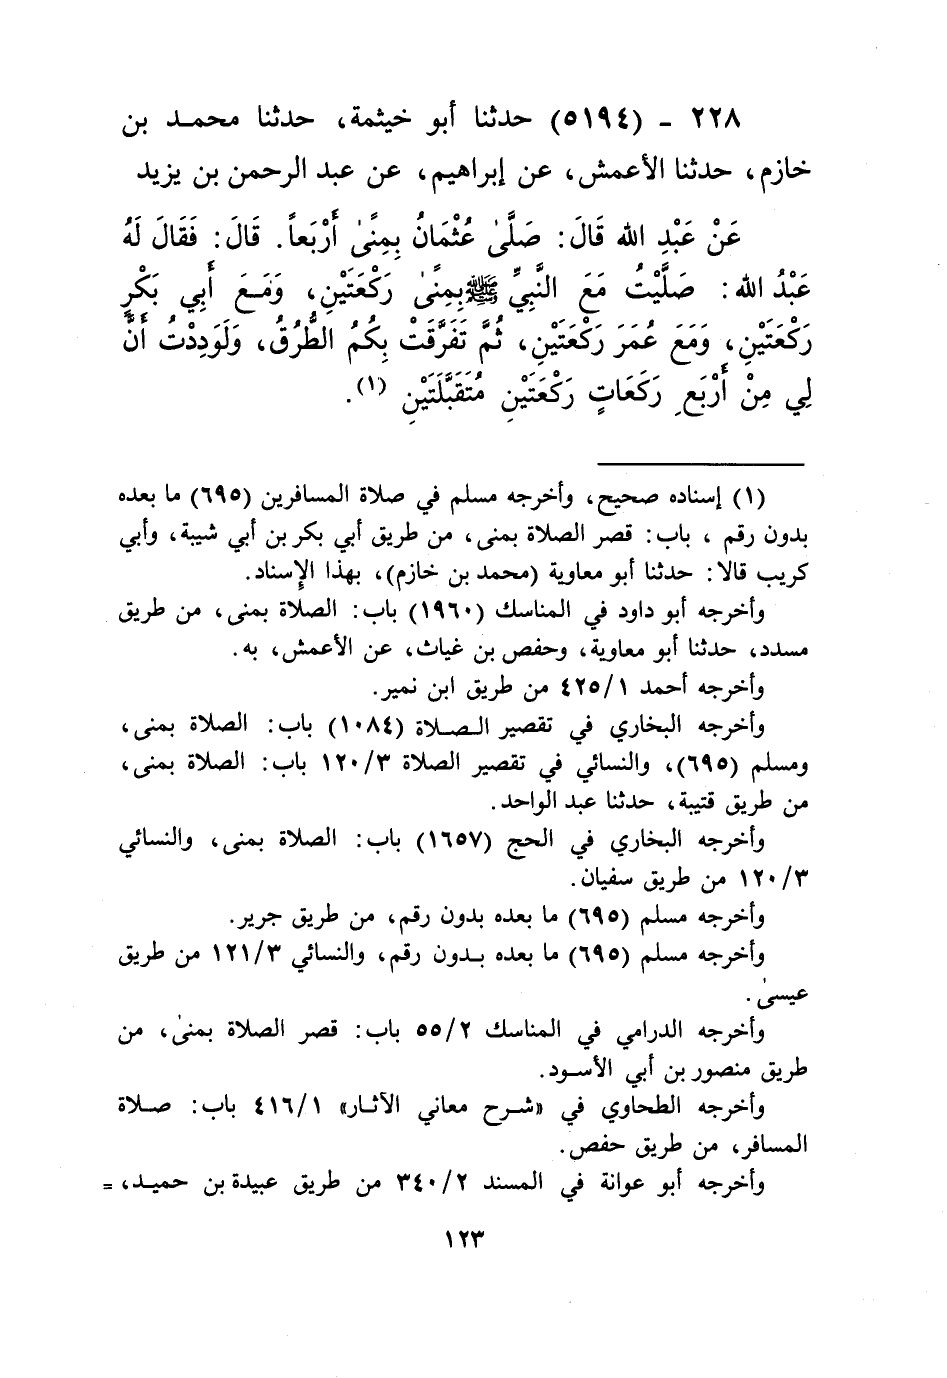 ٢٢٨ - (٥١٩٤) حدثنا أبو خيثمة، حدثنا محمـد بن
خازم، حدثنا الأعمش، عن إبراهيم، عن عبد الرحمن بن يزيد
عَنْ عَبْدِ الله قَالَ: صَلَّىٰ عُثْمَانُ بِمِنًىٰ أَرْبَعاً. قَالَ: فَقَالَ لَهُ
عَبْدُ الله: صَلَّيْتُ مَعَ النَّبِيِّ ﷺ بِمِنًىٰ رَكْعَتَيْنِ، وَمَـعَ أَبِي بَكْرٍ
رَكْعَتَيْنِ، وَمَعَ عُمَرَ رَكْعَتَيْنِ، ثُمَّ تَفَرَّقَتْ بِكُمُ الطُّرُقُ، وَلَوَدِدْتُ أَنَّ
لِي مِنْ أَرْبَعِ رَكَعَاتٍ رَكْعَتَيْنِ مُتَقَبَّلَتَيْنِ (١).
(١) إسناده صحيح، وأخرجه مسلم في صلاة المسافرين (٦٩٥) ما بعده
بدون رقم ، باب: قصر الصلاة بمنى، من طريق أبي بكر بن أبي شيبة، وأبي
كريب قالا: حدثنا أبو معاوية (محمد بن خازم)، بهذا الإسناد.
وأخرجه أبو داود في المناسك (١٩٦٠) باب: الصلاة بمنى، من طريق
مسدد، حدثنا أبو معاوية، وحفص بن غياث، عن الأعمش، به.
وأخرجه أحمد ٤٢٥/١ من طريق ابن نمير.
وأخرجه البخاري في تقصير الـصـلاة (١٠٨٤) باب: الصلاة بمنى،
ومسلم (٦٩٥)، والنسائي في تقصير الصلاة ١٢٠/٣ باب: الصلاة بمنى،
من طريق قتيبة، حدثنا عبد الواحد.
وأخرجه البخاري في الحج (١٦٥٧) باب: الصلاة بمنى، والنسائي
١٢٠/٣ من طريق سفيان.
وأخرجه مسلم (٦٩٥) ما بعده بدون رقم، من طريق جرير.
وأخرجه مسلم (٦٩٥) ما بعده بـدون رقم، والنسائي ١٢١/٣ من طريق
عيسىٰ.
وأخرجه الدرامي في المناسك ٥٥/٢ باب: قصر الصلاة بمنىٰ، من
طريق منصور بن أبي الأسـود.
وأخرجه الطحاوي في «شـرح معاني الآثـار» ٤١٦/١ باب: صـلاة
المسافر، من طريق حفص.
وأخرجه أبو عوانة في المسند ٣٤٠/٢ من طريق عبيدة بن حميـد، =
١٢٣